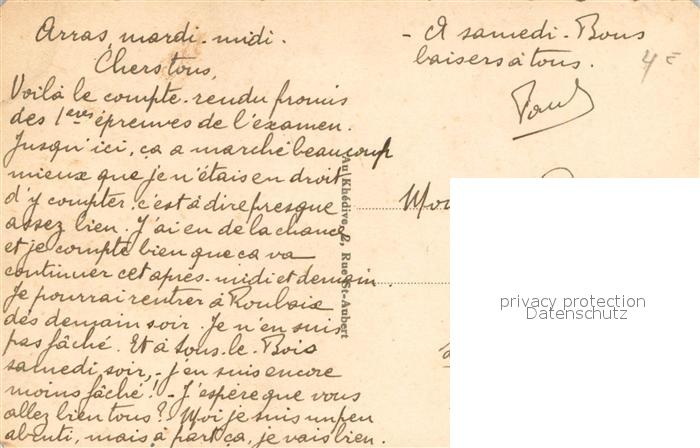 Arras, mardi-midi.
Chers tous,
Voilà le compte-rendu promis
des 1ères épreuves de l'examen.
Jusqu'ici, ça a marché beaucoup
mieux que je n'étais en droit
d'y compter. c'est à dire presque
assez bien. J'ai eu de la chance
et je compte bien que ça va
continuer cet après-midi et demain.
Je pourrai rentrer à Roubaix
dès demain soir. Je n'en suis
pas fâché. Et à Sous-le-Bois
samedi soir, - j'en suis encore
moins fâché! - J'espère que vous
allez bien tous? Moi je suis un peu
abruti, mais à part ça, je vais bien.
- A samedi - Bons
baisers à tous.
Paul
4 €
Au Khédive, 2, Rue St-Aubert
privacy protection
Datenschutz